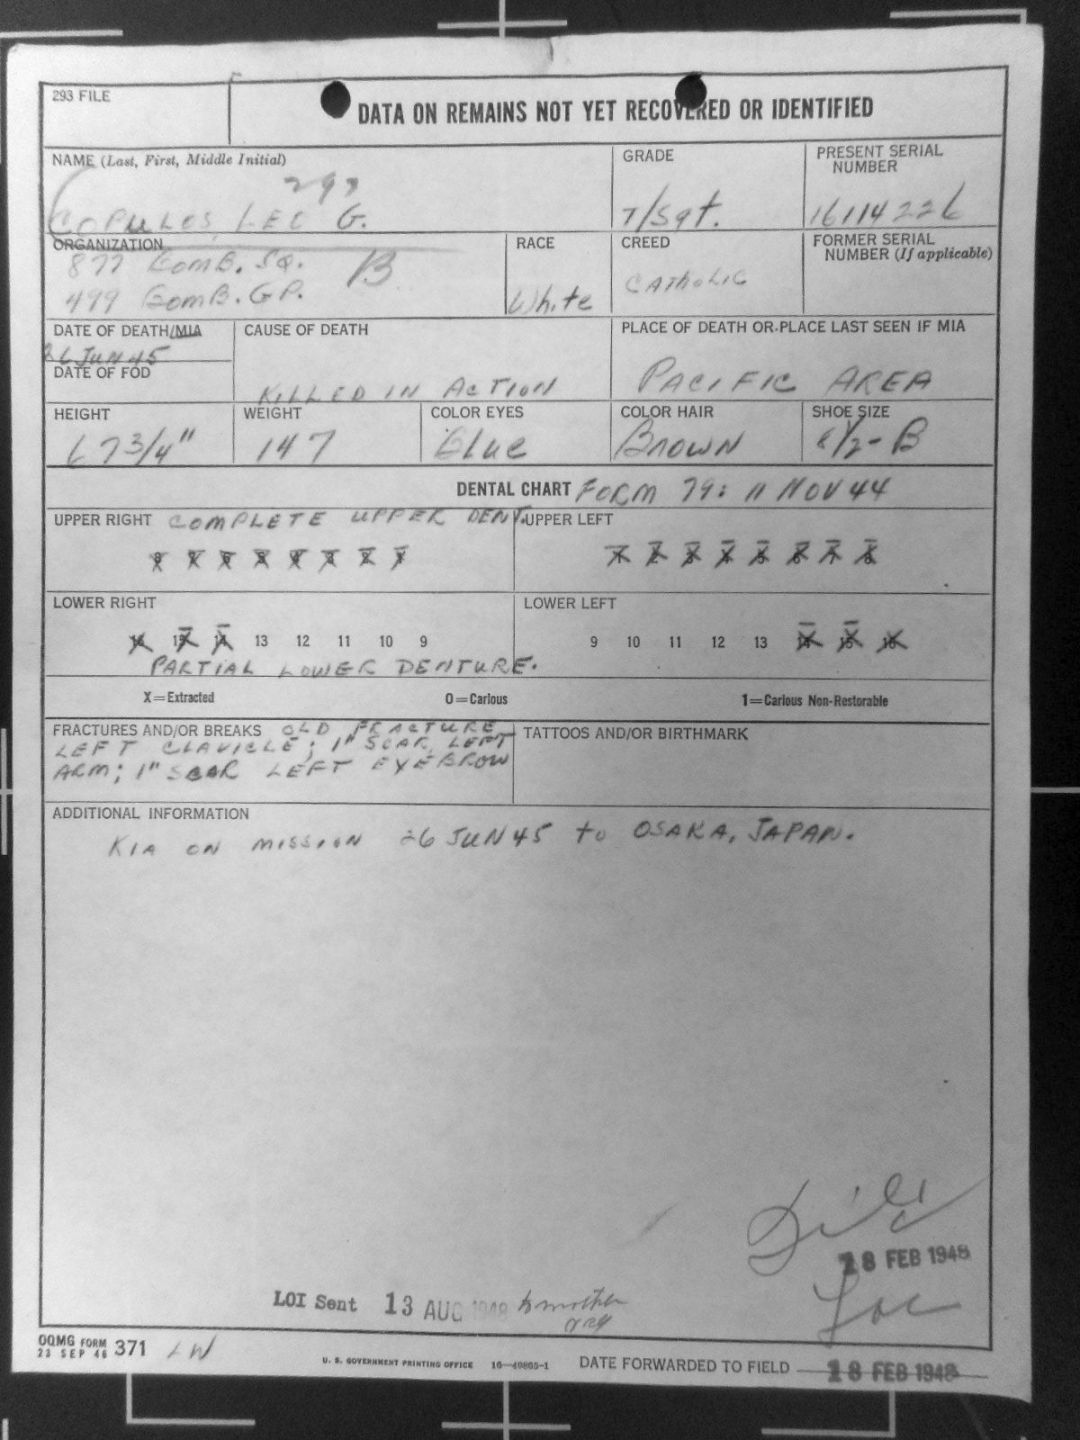 293 FILE
DATA ON REMAINS NOT YET RECOVERED OR IDENTIFIED
NAME (Last, First, Middle Initial)
293
COPULOS, LEO G.
GRADE
T/Sgt.
PRESENT SERIAL NUMBER
16114226
ORGANIZATION
877 BOMB. SQ. B
499 BOMB. GP.
RACE
White
CREED
CATHOLIC
FORMER SERIAL NUMBER (If applicable)
DATE OF DEATH/MIA
26 JUN 45
DATE OF FOD
CAUSE OF DEATH
KILLED IN ACTION
PLACE OF DEATH OR PLACE LAST SEEN IF MIA
PACIFIC AREA
HEIGHT
67 3/4"
WEIGHT
147
COLOR EYES
Blue
COLOR HAIR
BROWN
SHOE SIZE
8 1/2 - B
DENTAL CHART FORM 79: 11 NOV 44
UPPER RIGHT COMPLETE UPPER DENT.
8 7 6 5 4 3 2 1
UPPER LEFT
1 2 3 4 5 6 7 8
LOWER RIGHT
16 15 14 13 12 11 10 9
PARTIAL LOWER DENTURE.
LOWER LEFT
9 10 11 12 13 14 15 16
X=Extracted O=Carious 1=Carious Non-Restorable
FRACTURES AND/OR BREAKS OLD FRACTURE
LEFT CLAVICLE; 1" SCAR, LEFT
ARM; 1" SCAR LEFT EYEBROW
TATTOOS AND/OR BIRTHMARK
ADDITIONAL INFORMATION
KIA ON MISSION 26 JUN 45 to OSAKA, JAPAN.
18 FEB 1948
LOI Sent 13 AUG 1948 to mother
OQMG FORM 371
23 SEP 46
LW
U. S. GOVERNMENT PRINTING OFFICE 16—49865-1
DATE FORWARDED TO FIELD 18 FEB 1948